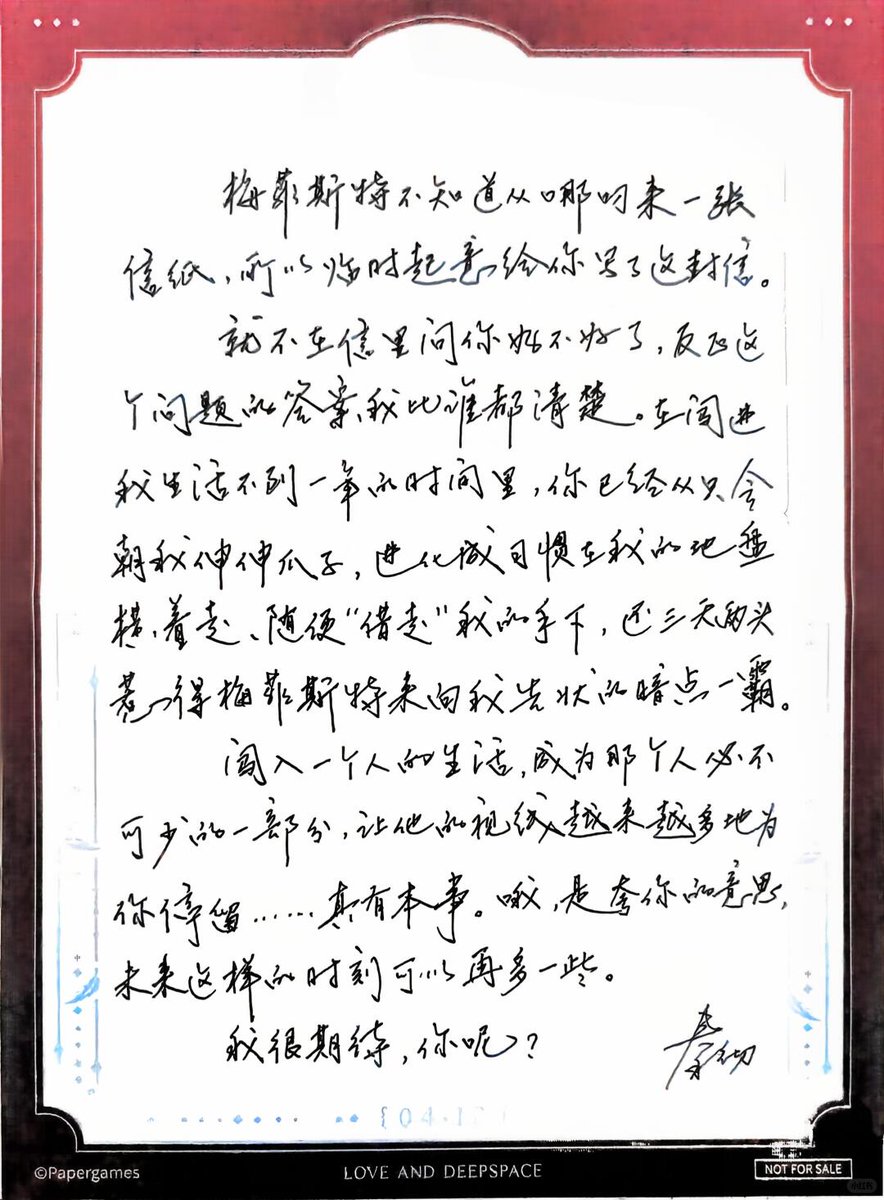 梅菲斯特不知道从哪叼来一张
信纸，所以临时起意给你写了这封信。
就不在信里问你好不好了，反正这
个问题的答案，我比谁都清楚。在闯进
我生活不到一年的时间里，你已经从只会
朝我伸伸爪子，进化成习惯在我的地盘
横着走、随便“借走”我的手下，还三天两头
惹得梅菲斯特来向我告状的暗点一霸。
闯入一个人的生活，成为那个人必不
可少的一部分，让他的视线越来越多地为
你停留……真有本事。哦，是夸你的意思，
未来这样的时刻可以再多一些。
我很期待，你呢？
秦彻
©Papergames
LOVE AND DEEPSPACE
NOT FOR SALE